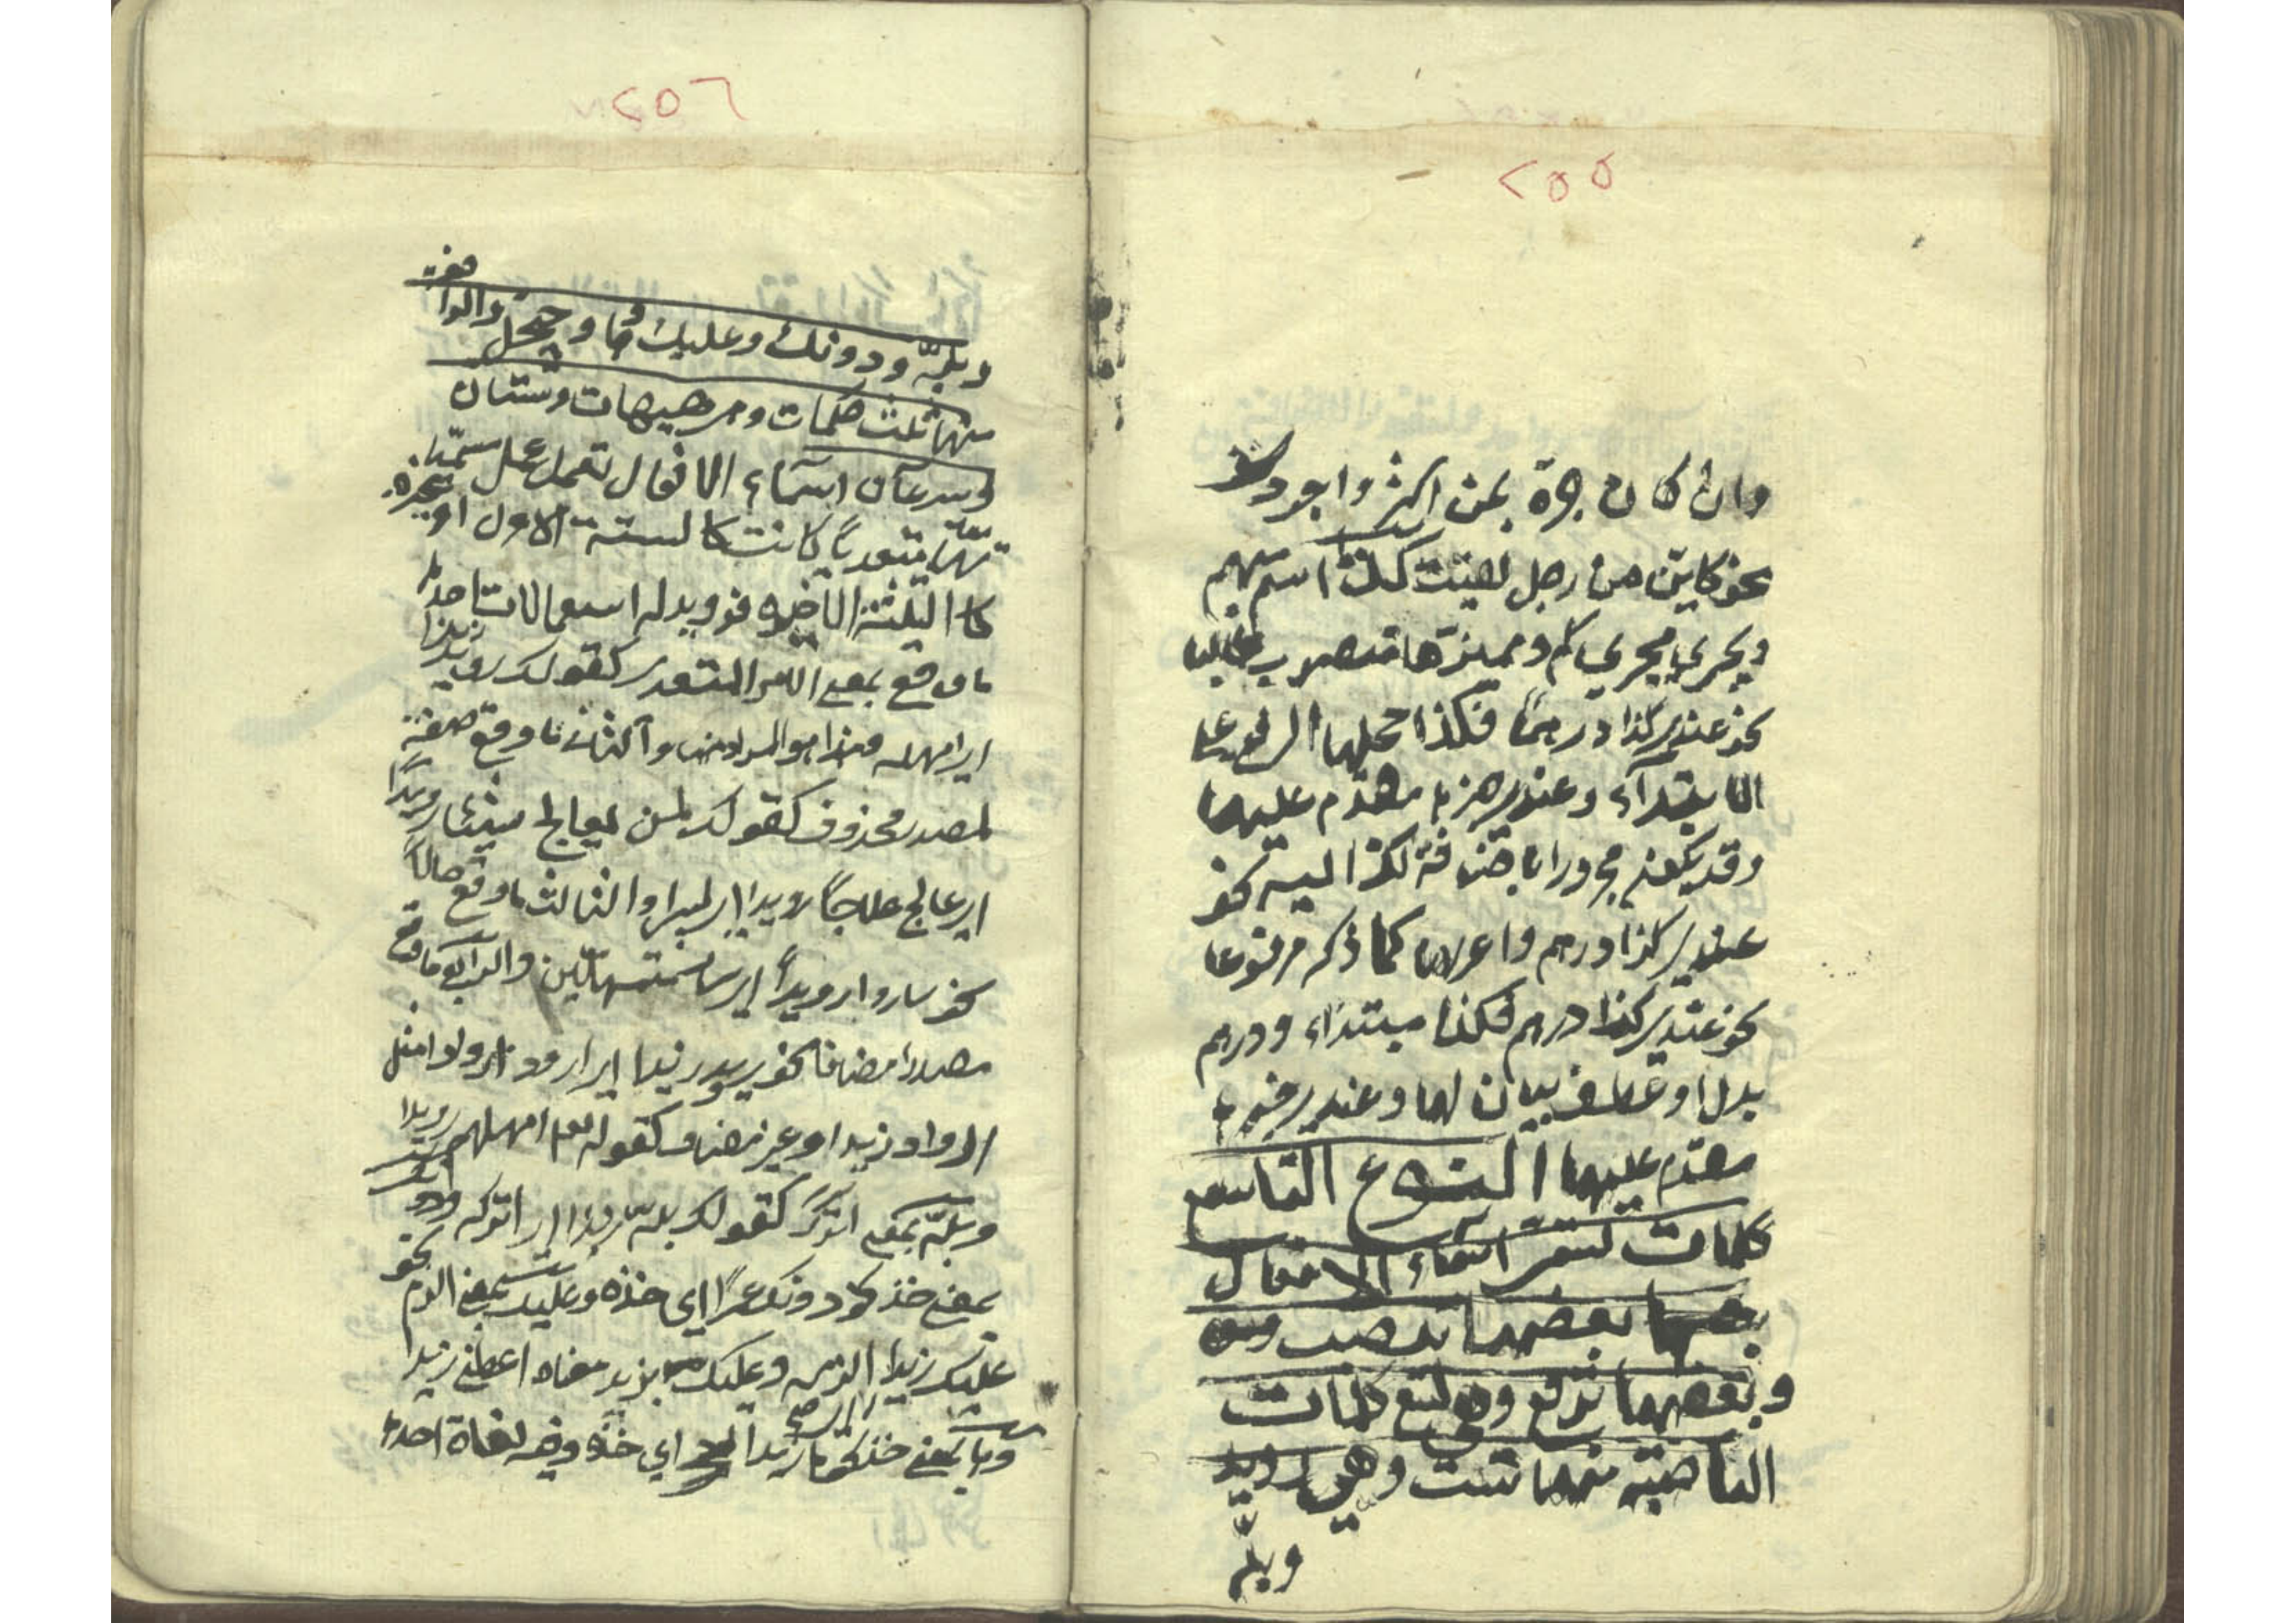 ٢٥٥
وان كان جره بمن اكثر واجود
نحو كاين من رجل لقيت كذا اسم مبهم
ويجري مجري كم ومميزها منصوب غالبا
نحو عندي كذا درهما فكذا محلها الرفع علي
الابتداء وعندي خبره مقدم عليها
وقد يكون مجرورا باضافة كذا اليه نحو
عندي كذا درهم واعرابه كما ذكر مرفوعا
نحو عندي كذا درهم فكذا مبتداء ودرهم
بدل او عطف بيان لها وعندي خبره
مقدم عليها النوع التاسع
كلمات تسمى اسماء الافعال
بعضها تنصب
وبعضها ترفع وهي تسع كلمات
الناصبة منها ست وهي رويد
وبله
٢٥٦
وبله ودونك وعليك وها وحيهل والرافعة
منها ثلث كلمات وهي هيهات وشتان
وسرعان اسماء الافعال تعمل عمل
متعديا كانت كالستة الاول او غيره
كالثلثة الاخيرة فرويد له استعمالات احدها
ما وقع بمعنى الامر المتعدي كقولك رويد زيدا
اي امهله وهذا هو المراد هنا والثاني ما وقع صفة
لمصدر محذوف كقولك لمن يعالج شيئا رويدا
اي عالج علاجا رويدا والثالث ما وقع حالا
نحو ساروا رويدا اي ساروا متمهلين والرابع ما وقع
مصدرا مضافا نحو رويد زيد اي ارود
ارواد زيد او غير مضاف كقوله تعالى امهلهم رويدا
وبله بمعنى اترك كقولك بله زيدا اي اتركه ودونك
بمعنى خذ نحو دونك عمرا اي خذه وعليك بمعنى الزم نحو
عليك زيدا اي الزمه وعليك بزيد معناه اعطني زيدا
وها بمعنى خذ نحو ها زيدا اي خذه وفيه لغاة احدها